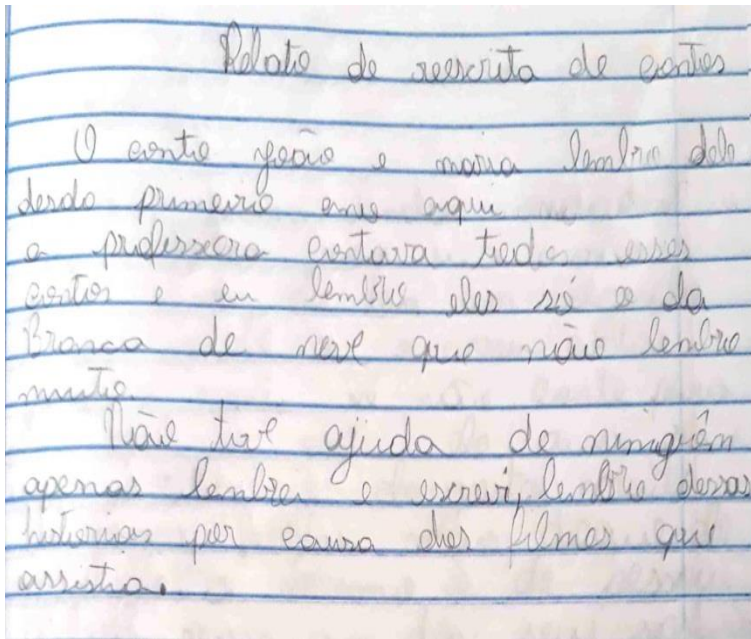 Relato de reescrita de contos
O conto joão e maria lembro dele
desdo primeiro ano aqui
a professora contava todos esses
contos e eu lembro eles só o da
Branca de neve que não lembro
muito.
Não tive ajuda de ninguém
apenas lembrei e escrevi, lembro dessas
historias por causa dos filmes que
assistia.